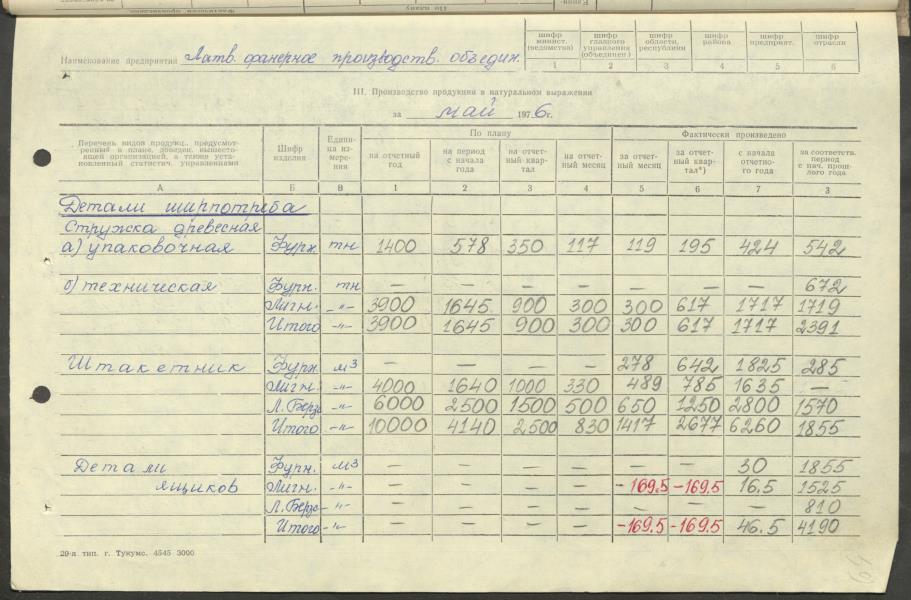 шифр минист. (ведомства) шифр главного управления (объединен.) шифр области, республики шифр района шифр предприят. шифр отрасли
1 2 3 4 5 6
Наименование предприятия Латв. фанерное производств. объедин.
III. Производство продукции в натуральном выражении
за май 1976 г.
Перечень видов продукц., предусмотренный в плане, доведен. вышестоящей организацией, а также установленный статистич. управлением
Шифр изделия
Единица измерения
По плану
Фактически произведено
на отчетный год на период с начала года на отчетный квартал на отчетный месяц за отчетный месяц за отчетный квартал*) с начала отчетного года за соответств. период с нач. прошлого года
А Б В 1 2 3 4 5 6 7 8
Детали ширпотреба
Стружка древесная
а) упаковочная Фурн. тн 1400 578 350 117 119 195 424 542
б) техническая Фурн. тн — — — — — — — 672
Лигн. -"- 3900 1645 900 300 300 617 1717 1719
Итого -"- 3900 1645 900 300 300 617 1717 2391
Штакетник Фурн. м3 — — — — 278 642 1825 285
Лигн. -"- 4000 1640 1000 330 489 785 1635 —
Л. Берз. -"- 6000 2500 1500 500 650 1250 2800 1570
Итого -"- 10000 4140 2500 830 1417 2677 6260 1855
Детали Фурн. м3 — — — — — — 30 1855
ящиков Лигн. -"- — — — — -169.5 -169.5 16,5 1525
Л. Берз. -"- — — — — — — — 810
Итого -"- — — — — -169.5 -169.5 46.5 4190
29-я тип. г. Тукумс. 4545 3000